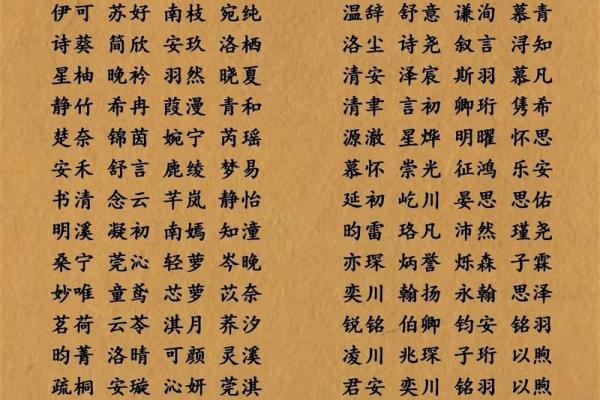 伊可 苏好 南枝 宛纯 温辞 舒意 谦洵 慕青
诗葵 简欣 安玖 洛栖 洛尘 诗尧 叙言 浔知
星柚 晚衿 羽然 晓夏 清安 泽宸 斯羽 慕凡
静竹 希冉 葭漫 青和 清聿 言初 卿珩 隽希
楚奈 锦茵 婉宁 芮瑶 源澈 星烨 明曜 怀思
安禾 舒言 鹿绫 梦易 慕怀 崇光 征鸿 乐安
书清 念云 芊岚 静怡 延初 屹川 晏思 思佑
明溪 凝初 南嫣 知潼 昀雷 珞凡 沛然 瑾尧
桑宁 莞沁 轻萝 岑晚 亦琛 炳誉 烁森 子霖
妙唯 童鸢 芯萝 苡奈 奕川 翰扬 永翰 思泽
茗荷 云苓 淇月 荞汐 锐铭 伯卿 钧安 铭羽
昀菁 洛晴 可颜 灵溪 凌川 兆琛 子珩 以煦
疏桐 安璇 沁妍 莞淇 君安 奕川 铭羽 以煦